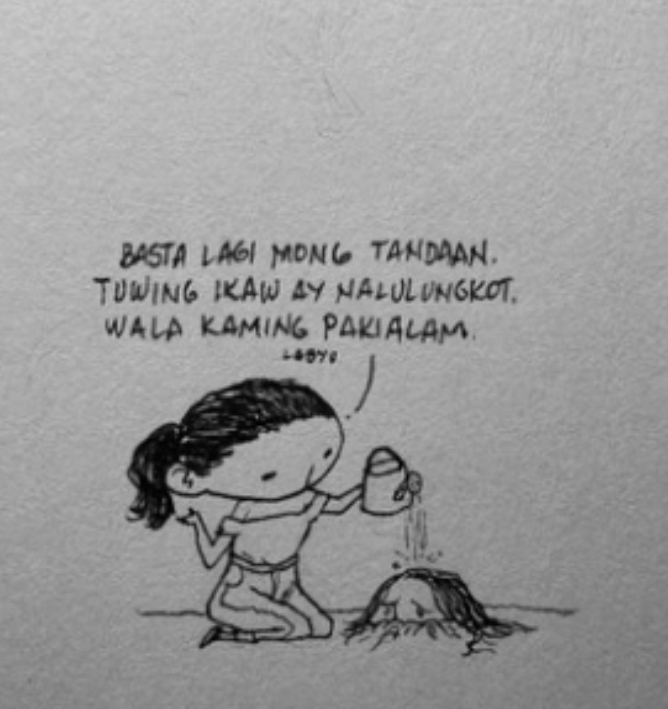 BASTA LAGI MONG TANDAAN.
TUWING IKAW AY NALULUNGKOT.
WALA KAMING PAKIALAM.
LABYU